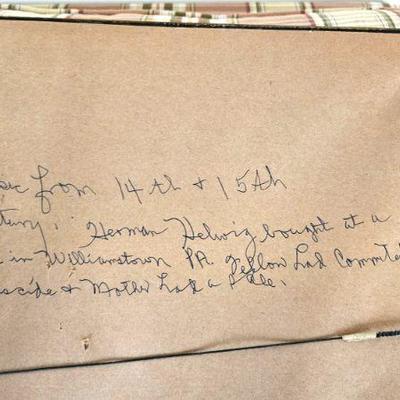 sic from 14th + 15th
tury. Herman Helwig bought at a
in Williamstown PA. Fellow had Commited
uscide + Mother had a Sale.